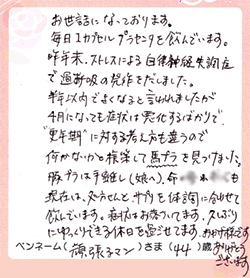 お世話になっております。
毎日1カプセルプラセンタを飲んでいます。
昨年末、ストレスによる自律神経失調症
で過呼吸の発作をだしました。
半年以内でよくなると言われましたが
4月になっても症状は悪化するばかりで、
"更年期"に対する考え方も違うので
何かないかと模索して馬プラを見つけました。
豚プラは手離し(娘へ)、命の
現在は、処方せんとサプリを体調に合わせて
飲んでいます。症状はおちついてます。久しぶり
にゆっくりできる休日を過ごせてます。おかげ様です
ありがとう
ございます
ペンネーム(頑張るマン)さま(44)歳